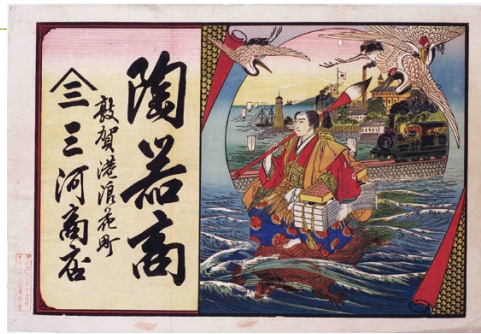 陶器商
敦賀港浪花町
三 三河商店